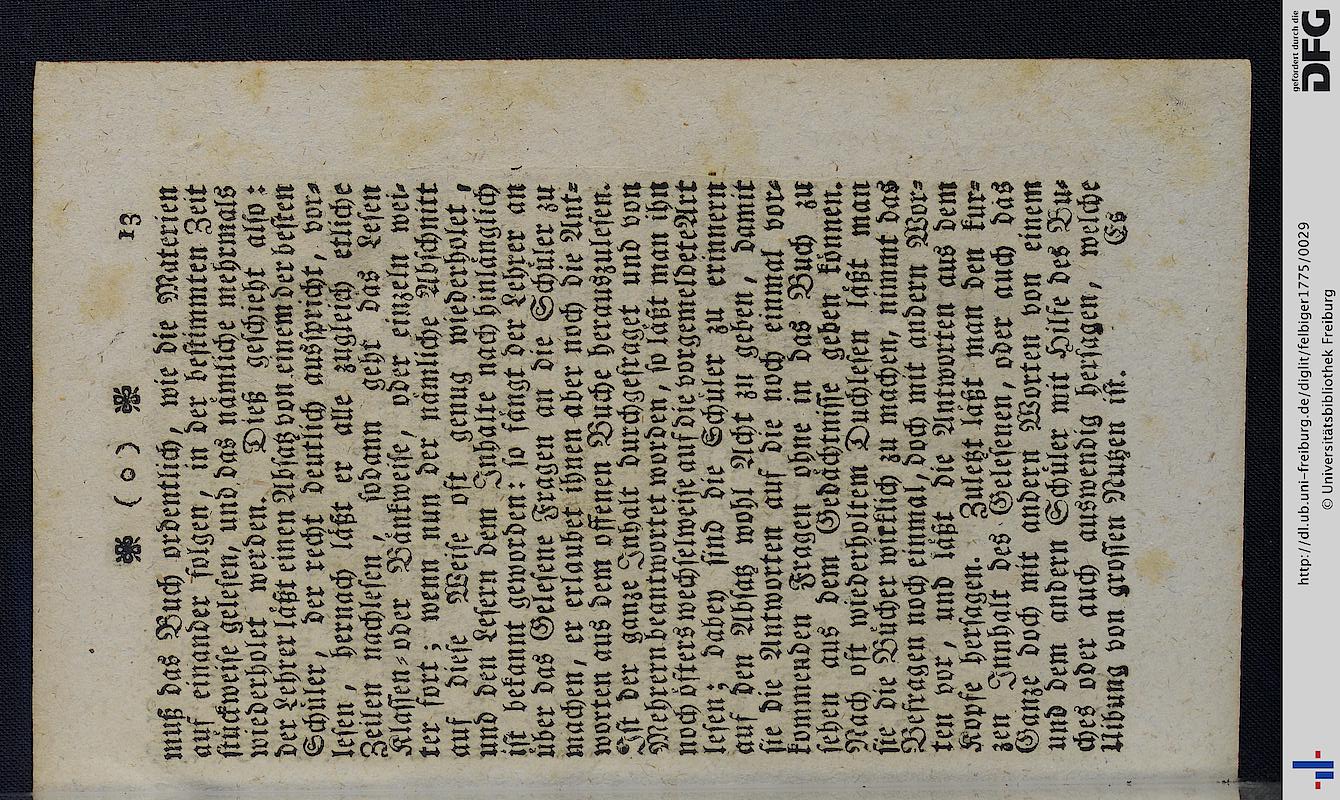 ❀ ( o ) ❀ 13
muß das Buch ordentlich, wie die Materien
auf einander folgen, in der bestimmten Zeit
stückweise gelesen, und das nämliche mehrmals
wiederholet werden. Dieß geschieht also:
der Lehrer läßt einen Absatz von einem der besten
Schüler, der recht deutlich ausspricht, vor⸗
lesen, hernach läßt er alle zugleich etliche
Zeilen nachlesen, sodann geht das Lesen
Klassen⸗ oder Bänkweise, oder einzeln wei⸗
ter fort; wenn nun der nämliche Abschnitt
auf diese Weise oft genug wiederholet,
und den Lesern dem Inhalte nach hinlänglich
ist bekannt geworden: so fängt der Lehrer an
über das Gelesene Fragen an die Schüler zu
machen, er erlaubet ihnen aber noch die Ant⸗
worten aus dem offenen Buche herauszulesen.
Ist der ganze Inhalt durchgefraget und von
Mehrern beantwortet worden, so läßt man ihn
noch öfters wechselweise auf die vorgemeldete Art
lesen; dabey sind die Schüler zu erinnern
auf den Absatz wohl Acht zu geben, damit
sie die Antworten auf die noch einmal vor⸗
kommenden Fragen ohne in das Buch zu
sehen aus dem Gedächtnisse geben können.
Nach oft wiederholtem Duchlesen läßt man
sie die Bücher wirklich zu machen, nimmt das
Befragen noch einmal, doch mit andern Wor⸗
ten vor, und läßt die Antworten aus dem
Kopfe hersagen. Zuletzt läßt man den kur⸗
zen Innhalt des Gelesenen, oder auch das
Ganze doch mit andern Worten von einem
und dem andern Schüler mit Hilfe des Bu⸗
ches oder auch auswendig hersagen, welche
Uibung von grossen Nutzen ist.
Es
gefördert durch die
DFG
http://dl.ub.uni-freiburg.de/diglit/felbiger1775/0029
© Universitätsbibliothek Freiburg